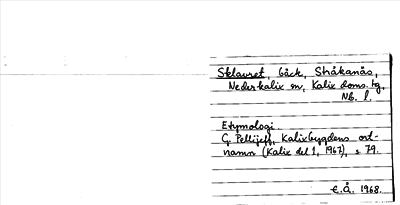 Sklauret, bäck, Stråkanäs,
Nederkalix sn, Kalix doms. tg,
Nb. l.
Etymologi.
G. Pellijeff, Kalixbygdens ort-
namn (Kalix del 1, 1967), s 79.
E.Å. 1968.